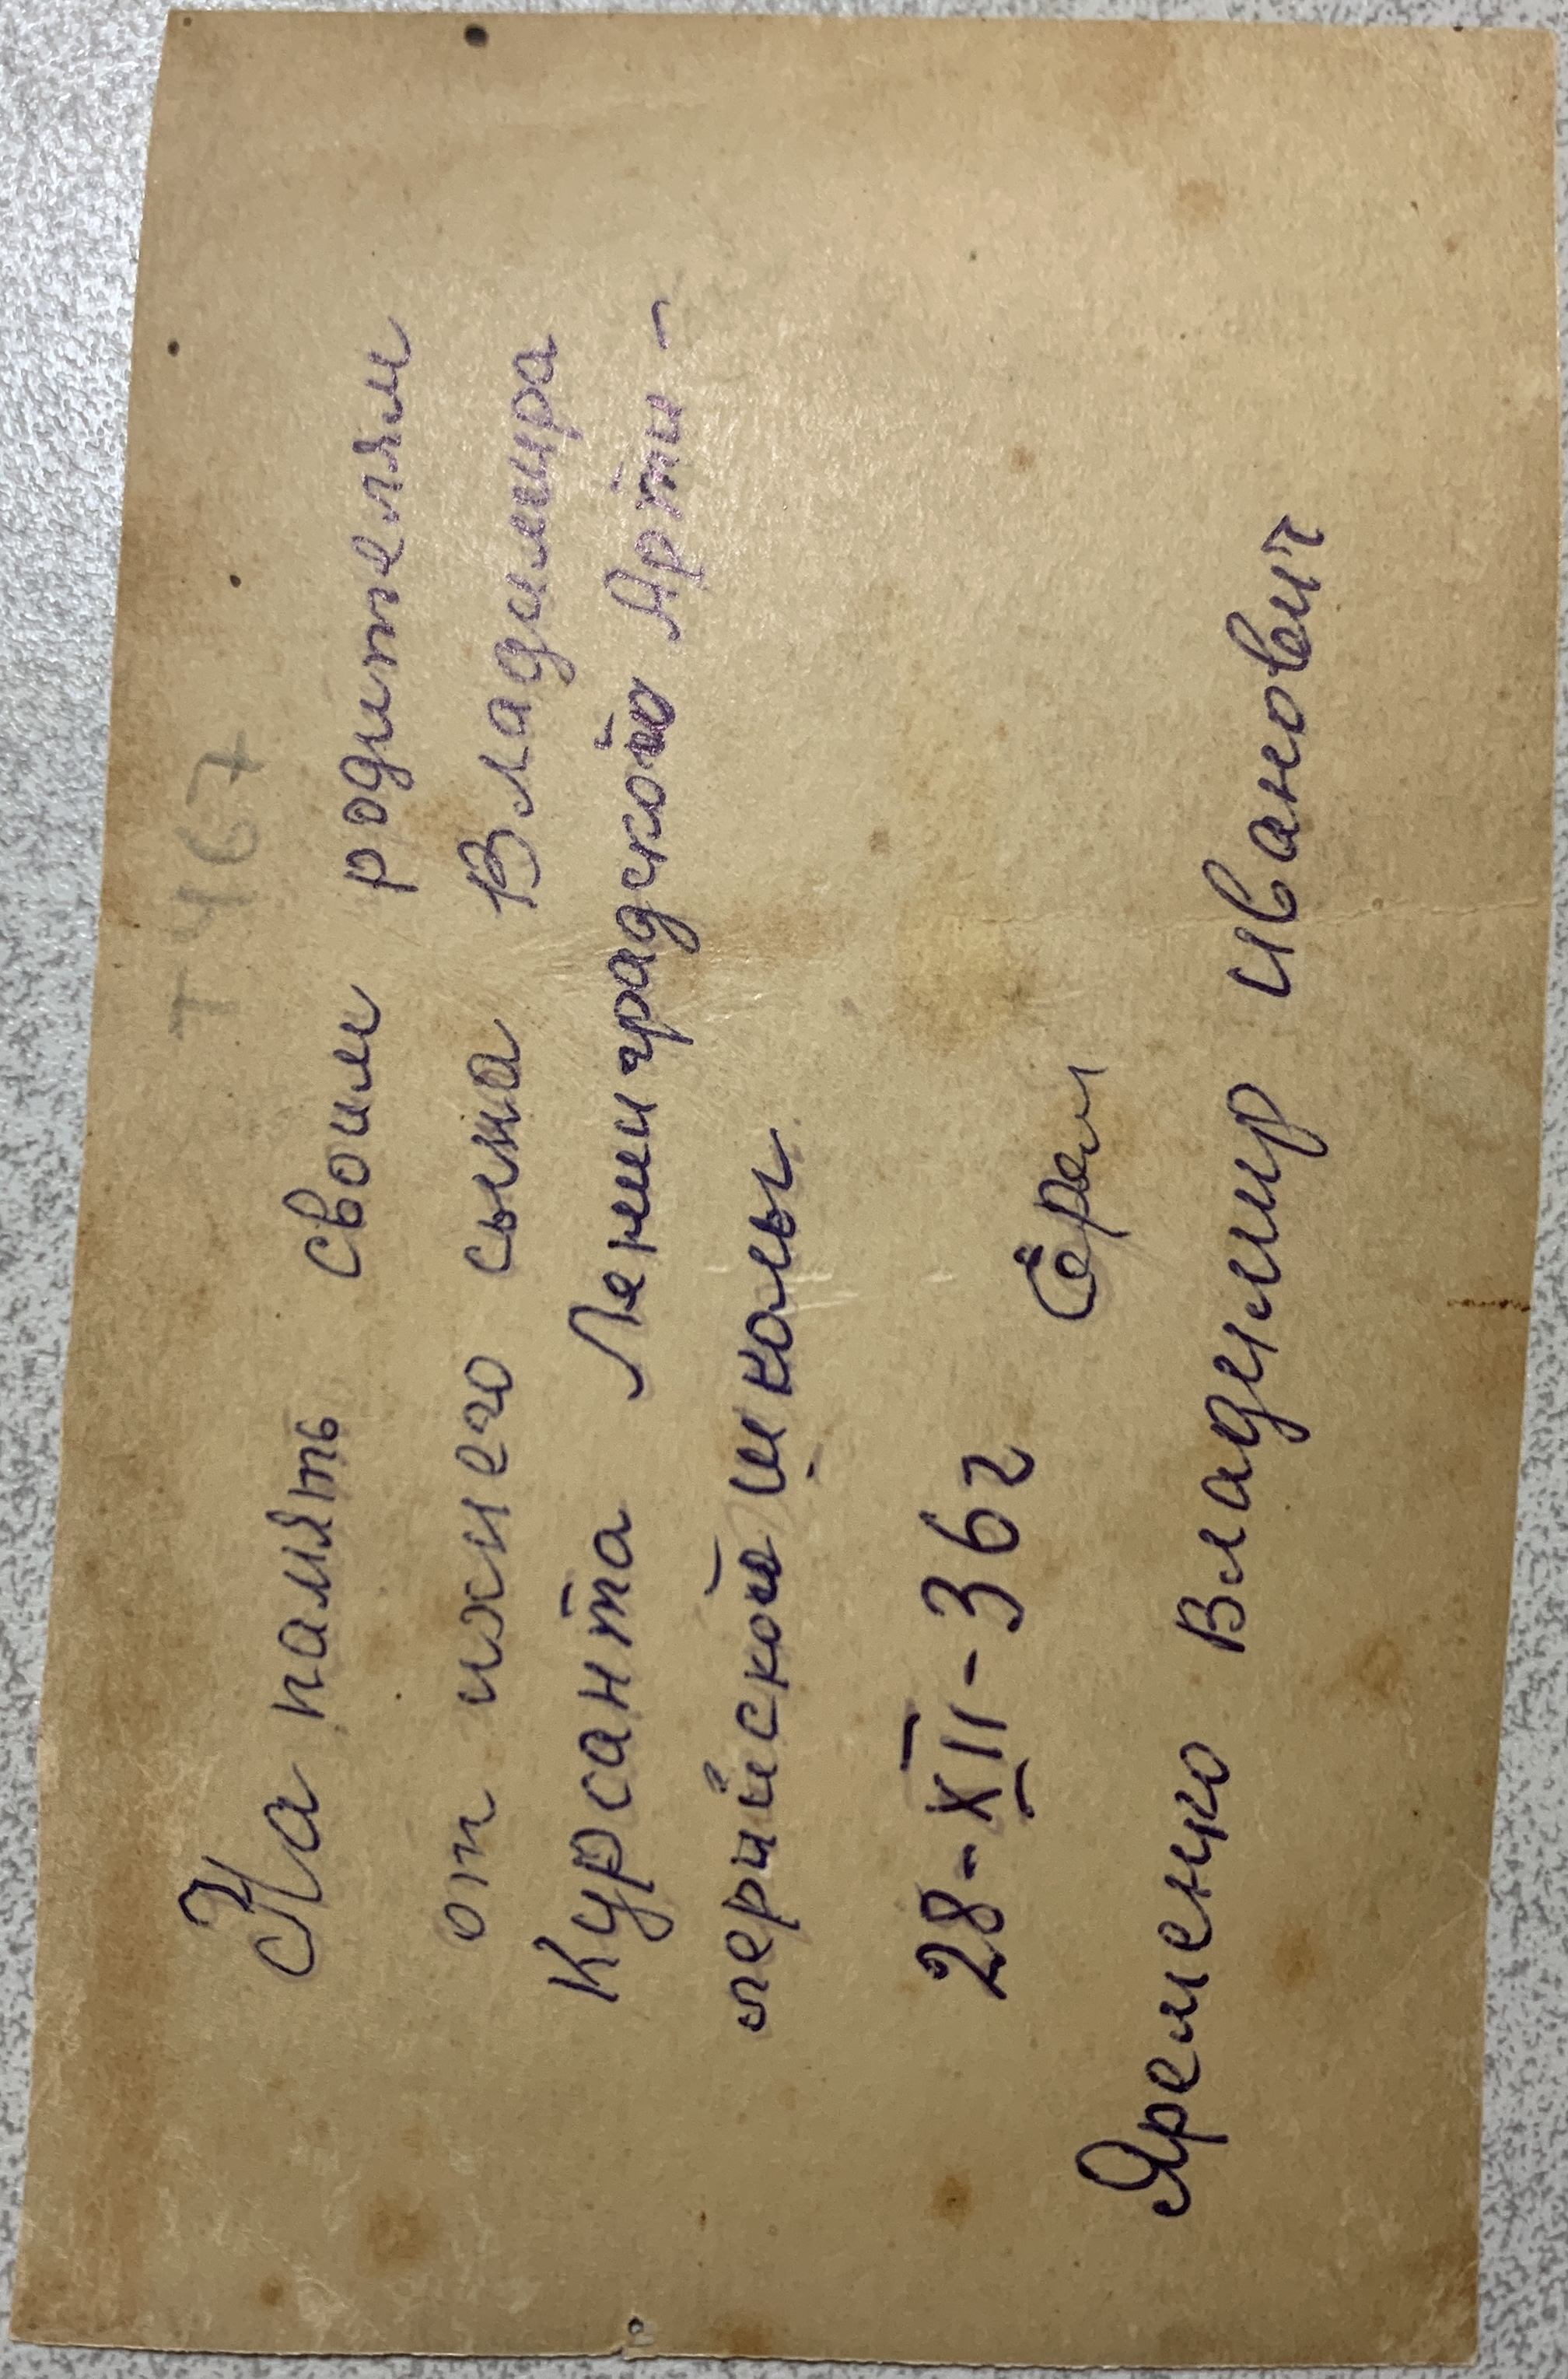 Т467
На память своим родителям
от ихнего сына Владимира
Курсанта Ленинградской Арти-
лерийской школы
28-XII-36г
Яременко Владимир Иванович